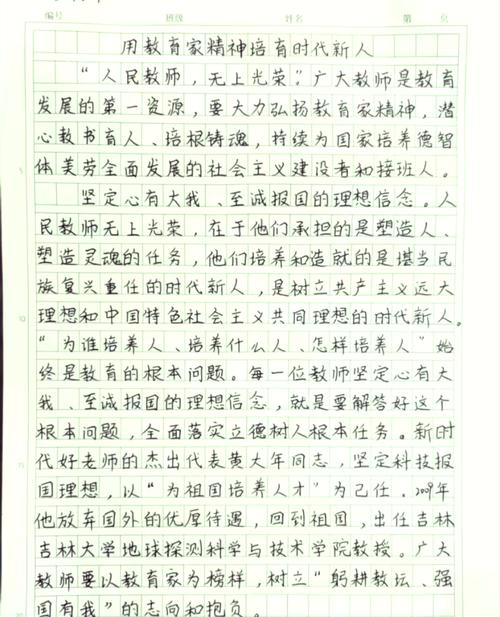 编号 班级 姓名 第 页
用教育家精神培育时代新人
“人民教师，无上光荣。”广大教师是教育
发展的第一资源，要大力弘扬教育家精神，潜
心教书育人、培根铸魂，持续为国家培养德智
体美劳全面发展的社会主义建设者和接班人。
坚定心有大我、至诚报国的理想信念。人
民教师无上光荣，在于他们承担的是塑造人、
塑造灵魂的任务，他们培养和造就的是堪当民
族复兴重任的时代新人，是树立共产主义远大
理想和中国特色社会主义共同理想的时代新人。
“为谁培养人、培养什么人、怎样培养人”始
终是教育的根本问题。每一位教师坚定心有大
我、至诚报国的理想信念，就是要解答好这个
根本问题，全面落实立德树人根本任务。新时
代好老师的杰出代表黄大年同志，坚定科技报
国理想，以“为祖国培养人才”为己任。2009年
他放弃国外的优厚待遇，回到祖国，出任吉林
吉林大学地球探测科学与技术学院教授。广大
教师要以教育家为榜样，树立“躬耕教坛、强
国有我”的志向和抱负。